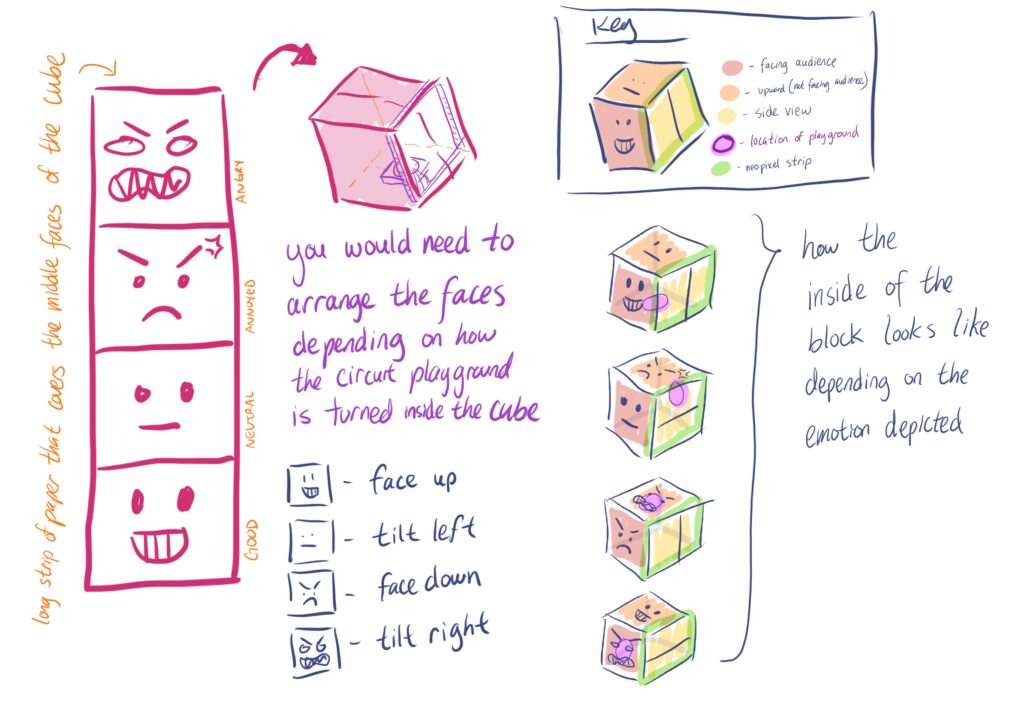 long strip of paper that covers the middle faces of the cube
ANGRY
ANNOYED
NEUTRAL
GOOD
you would need to
arrange the faces
depending on how
the circuit playground
is turned inside the cube
- face up
- tilt left
- face down
- tilt right
Key
- facing audience
- upward (not facing audience)
- side view
- location of playground
- neopixel strip
how the
inside of the
block looks like
depending on the
emotion depicted